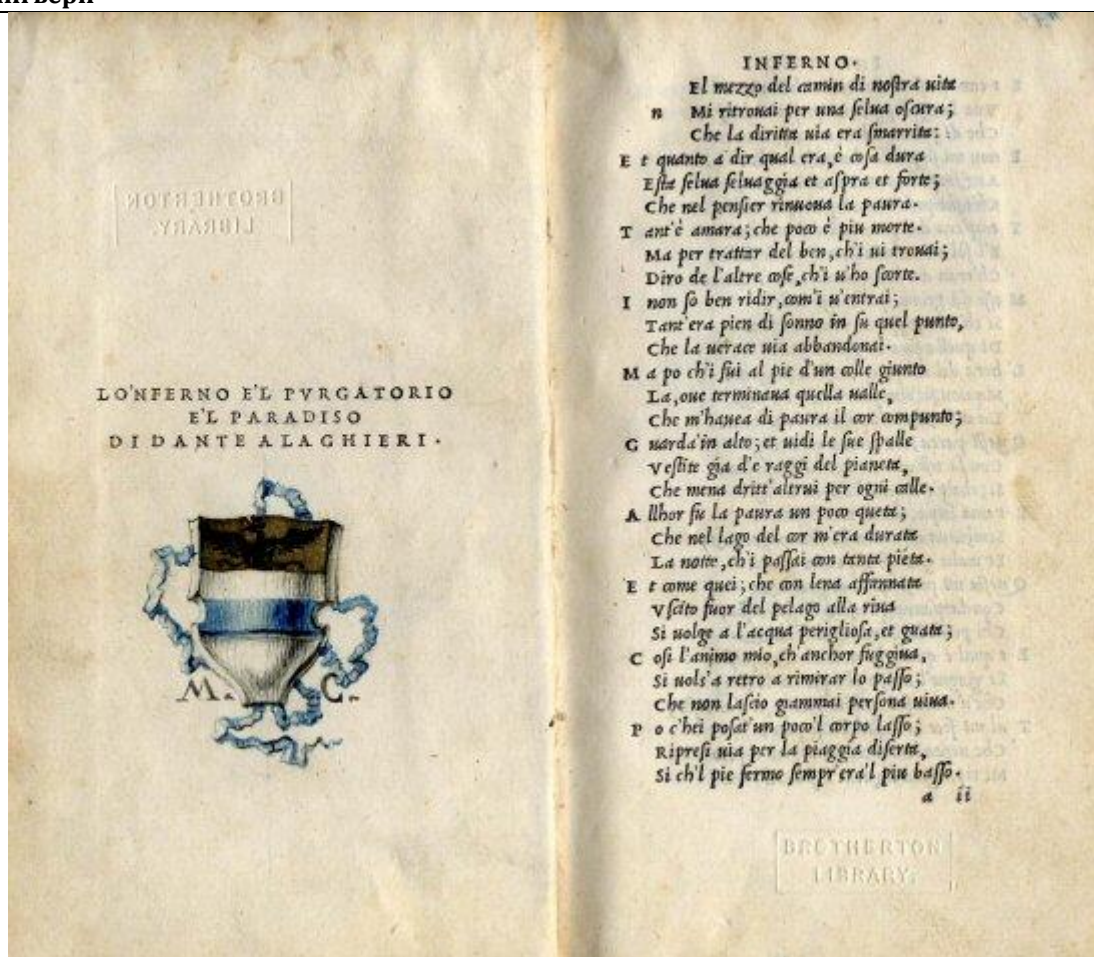 BROTHERTON
LIBRARY.
LO'NFERNO E'L PVRGATORIO
E'L PARADISO
DI DANTE ALAGHIERI.
M. C.
INFERNO.
El mezzo del camin di nostra uita
n Mi ritrouai per una selua oscura;
Che la diritta uia era smarrita:
E t quanto a dir qual era, è cosa dura
Esta selua seluaggia et aspra et forte;
Che nel pensier rinuoua la paura.
T ant'è amara; che poco è piu morte.
Ma per trattar del ben, ch'i ui trouai;
Diro de l'altre cose, ch'i u'ho scorte.
I non so ben ridir, com'i u'entrai;
Tant'era pien di sonno in su quel punto,
Che la uerace uia abbandonai.
M a po ch'i fui al pie d'un colle giunto
La, oue terminaua quella ualle,
Che m'hauea di paura il cor compunto;
G uarda'in alto; et uidi le sue spalle
Vestite gia d'e raggi del pianeta,
Che mena dritt'altrui per ogni calle.
A llhor fu la paura un poco queta;
Che nel lago del cor m'era durata
La notte, ch'i passai con tanta pièta.
E t come quei; che con lena affannata
Vscito fuor del pelago alla riua
Si uolge a l'acqua perigliosa, et guata;
C osi l'animo mio, ch'anchor fuggiua,
Si uols'a retro a rimirar lo passo;
Che non lascio giammai persona uiua.
P o c'hei posat'un poco'l corpo lasso;
Ripresi uia per la piaggia diserta,
Si ch'l pie fermo sempr'era'l piu basso.
a ii
BROTHERTON
LIBRARY.